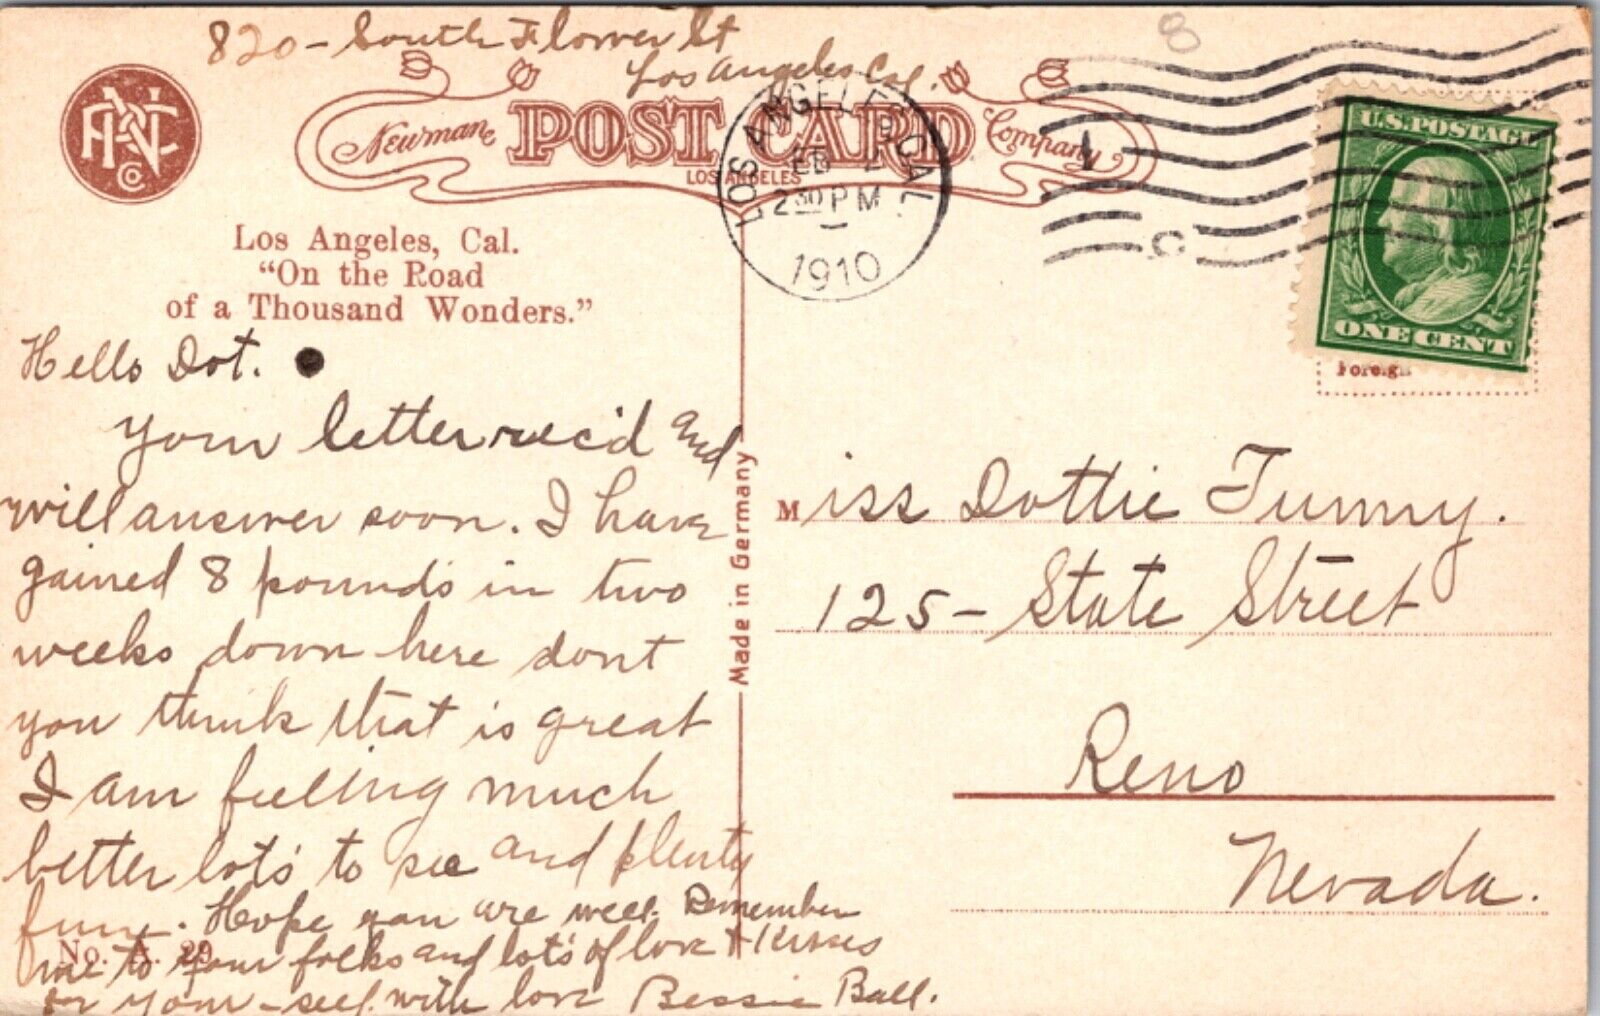 820 - South Flower St
Los Angeles Cal.
Newman POST CARD Company
LOS ANGELES
Co.
LOS ANGELES, CAL.
FEB
2 30 PM
1910
U.S. POSTAGE
ONE CENT
Foreign
Los Angeles, Cal.
"On the Road
of a Thousand Wonders."
Hello Dot.
your letter rec'd and
will answer soon. I have
gained 8 pounds in two
weeks down here dont
you think that is great
I am feeling much
better lots to see and plenty
fun. Hope you are well. Remember
me to your folks and lots of love + kisses
for your-self. with love Bessie Ball.
No. A. 29
Made in Germany
Miss Dottie Tunny.
125 - State Street
Reno
Nevada.